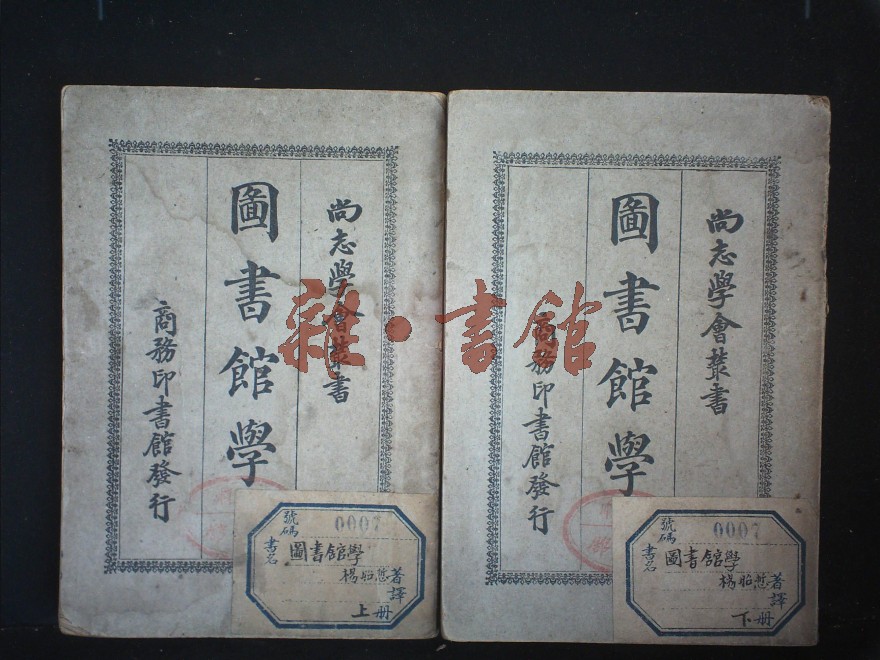 尚志學會叢書
圖書館學
商務印書館發行
號碼 0007
書名 圖書館學
楊昭悊 著譯
上册
尚志學會叢書
圖書館學
商務印書館發行
號碼 0007
書名 圖書館學
楊昭悊 著譯
下册
雜·書館